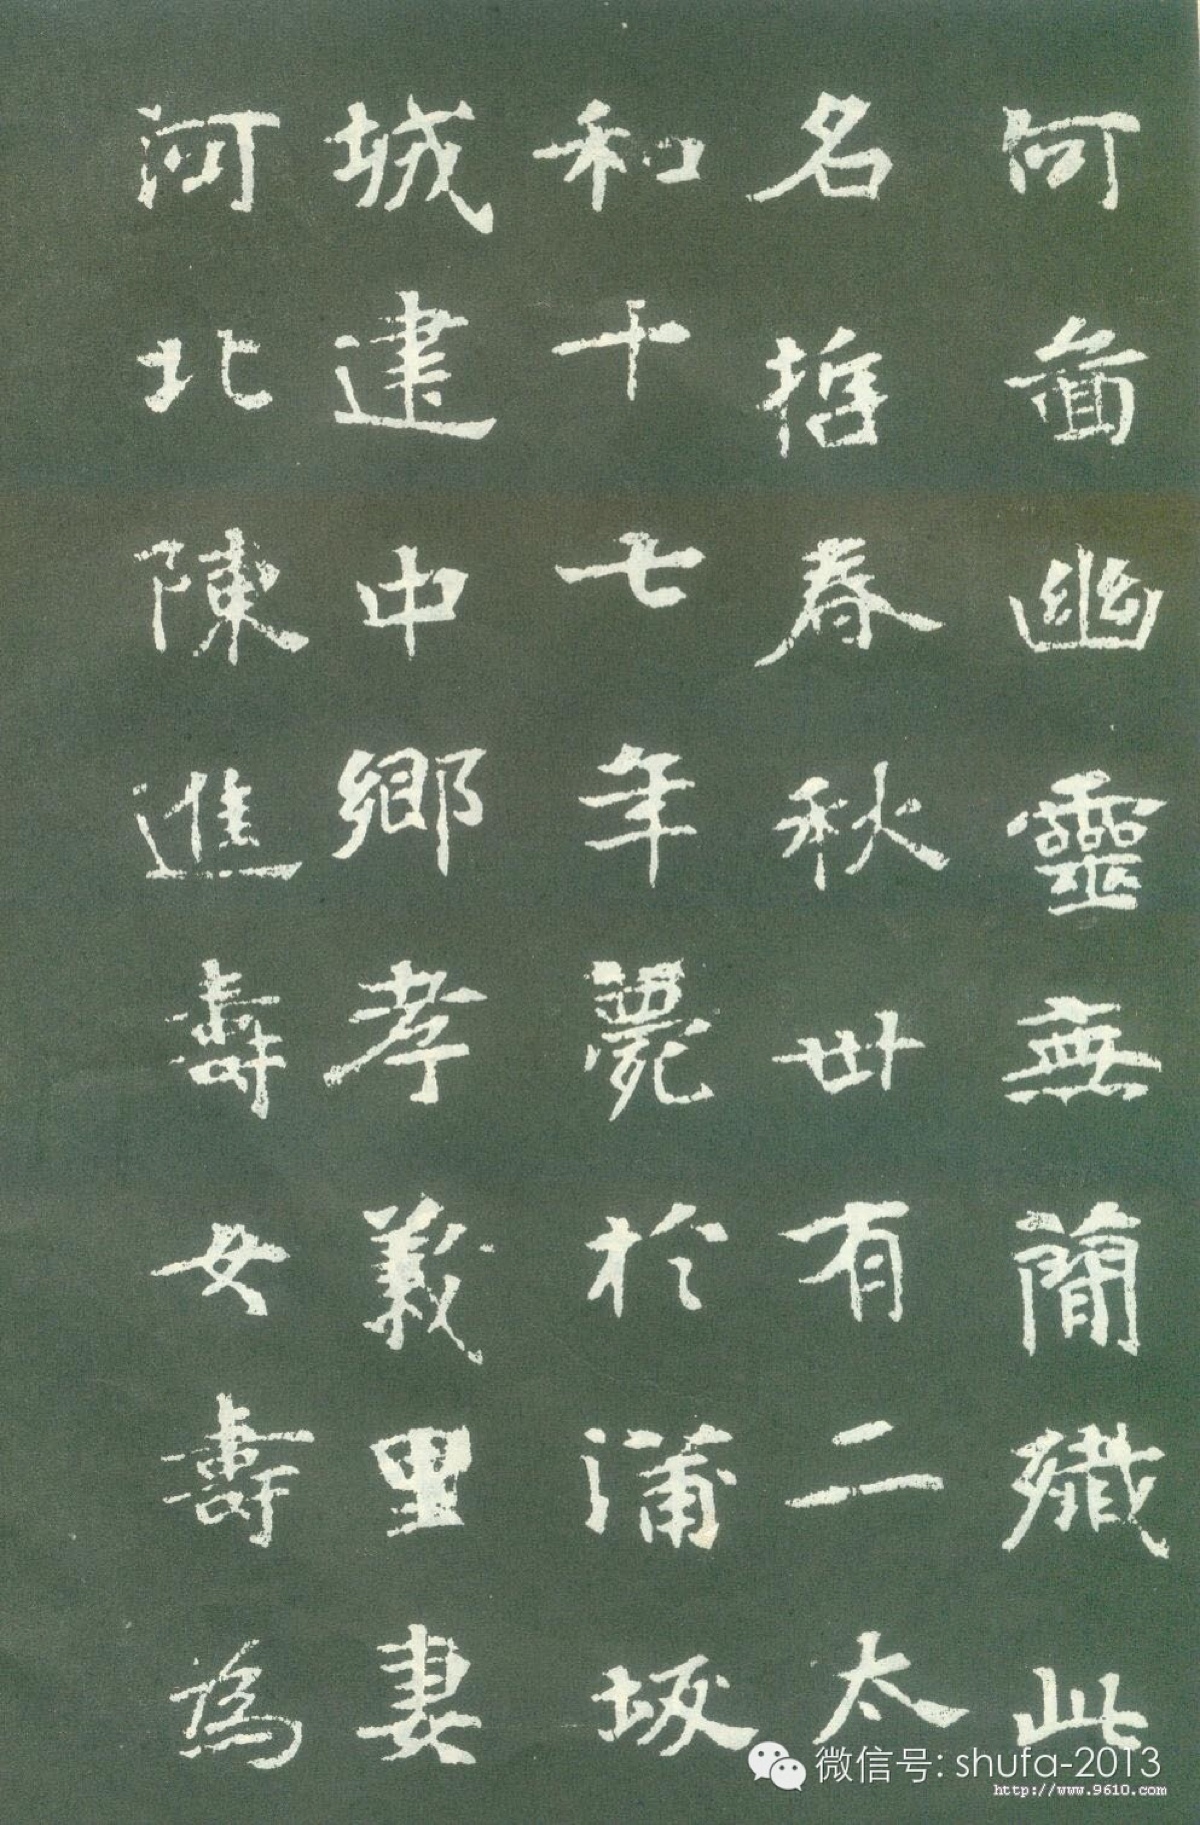 何啚幽靈無簡殲此
名哲春秋卅有二太
和十七年薨於蒲坂
城建中鄉孝義里妻
河北陳進壽女壽為
微信号: shufa-2013
http://www.9610.com